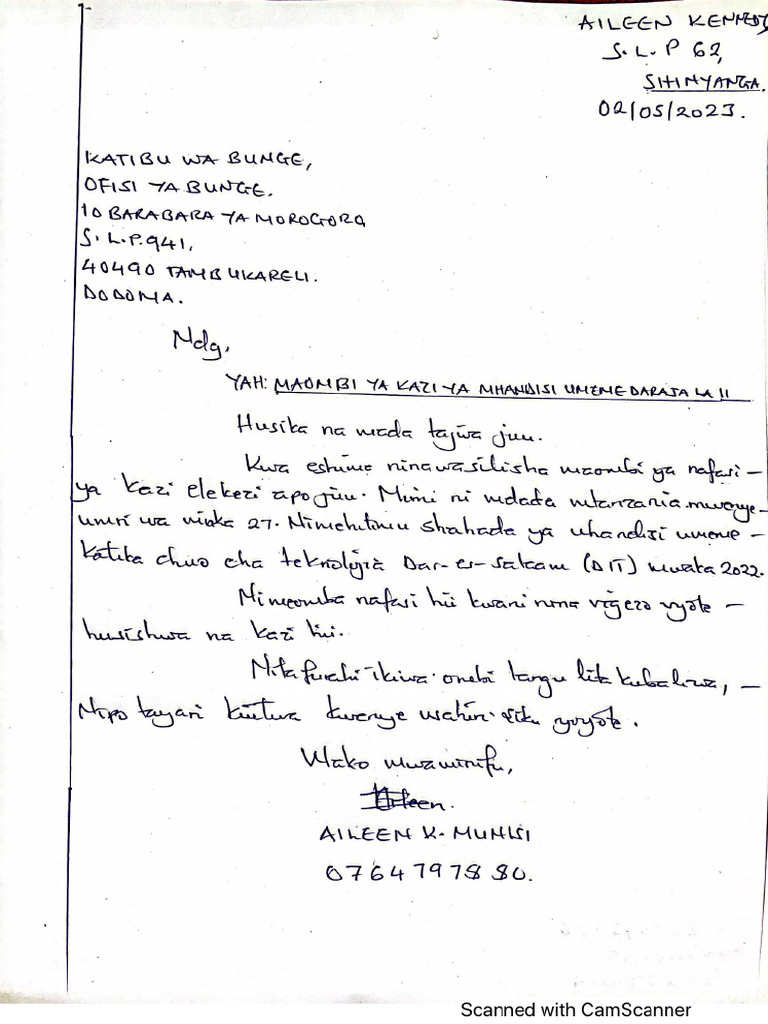 AILEEN KENNEDY
S.L.P 62,
SHINYANGA.
02/05/2023.
KATIBU WA BUNGE,
OFISI YA BUNGE.
10 BARABARA YA MOROGORO
S.L.P. 941,
40490 TAMBUKARELI.
DODOMA.
Ndg,
YAH: MAOMBI YA KAZI YA MHANDISI UMEME DARAJA LA II
Husika na mada tajwa juu.
Kwa eshima ninawasilisha maombi ya nafasi -
ya kazi elekezi apo juu. Mimi ni mdada mtanzania mwenye-
umri wa miaka 27. Nimehitimu shahada ya uhandisi umeme -
katika chuo cha teknolojia Dar-es-salaam (DIT) mwaka 2022.
Nimeomba nafasi hii kwani nina vigezo vyote -
husishwa na kazi hii.
Nitafurahi ikiwa ombi langu lita kubaliwa, -
Nipo tayari kuitwa kwenye usahili siku yoyote.
Wako mwaminifu,
Aileen.
AILEEN K. MUNISI
0764797880.
Scanned with CamScanner